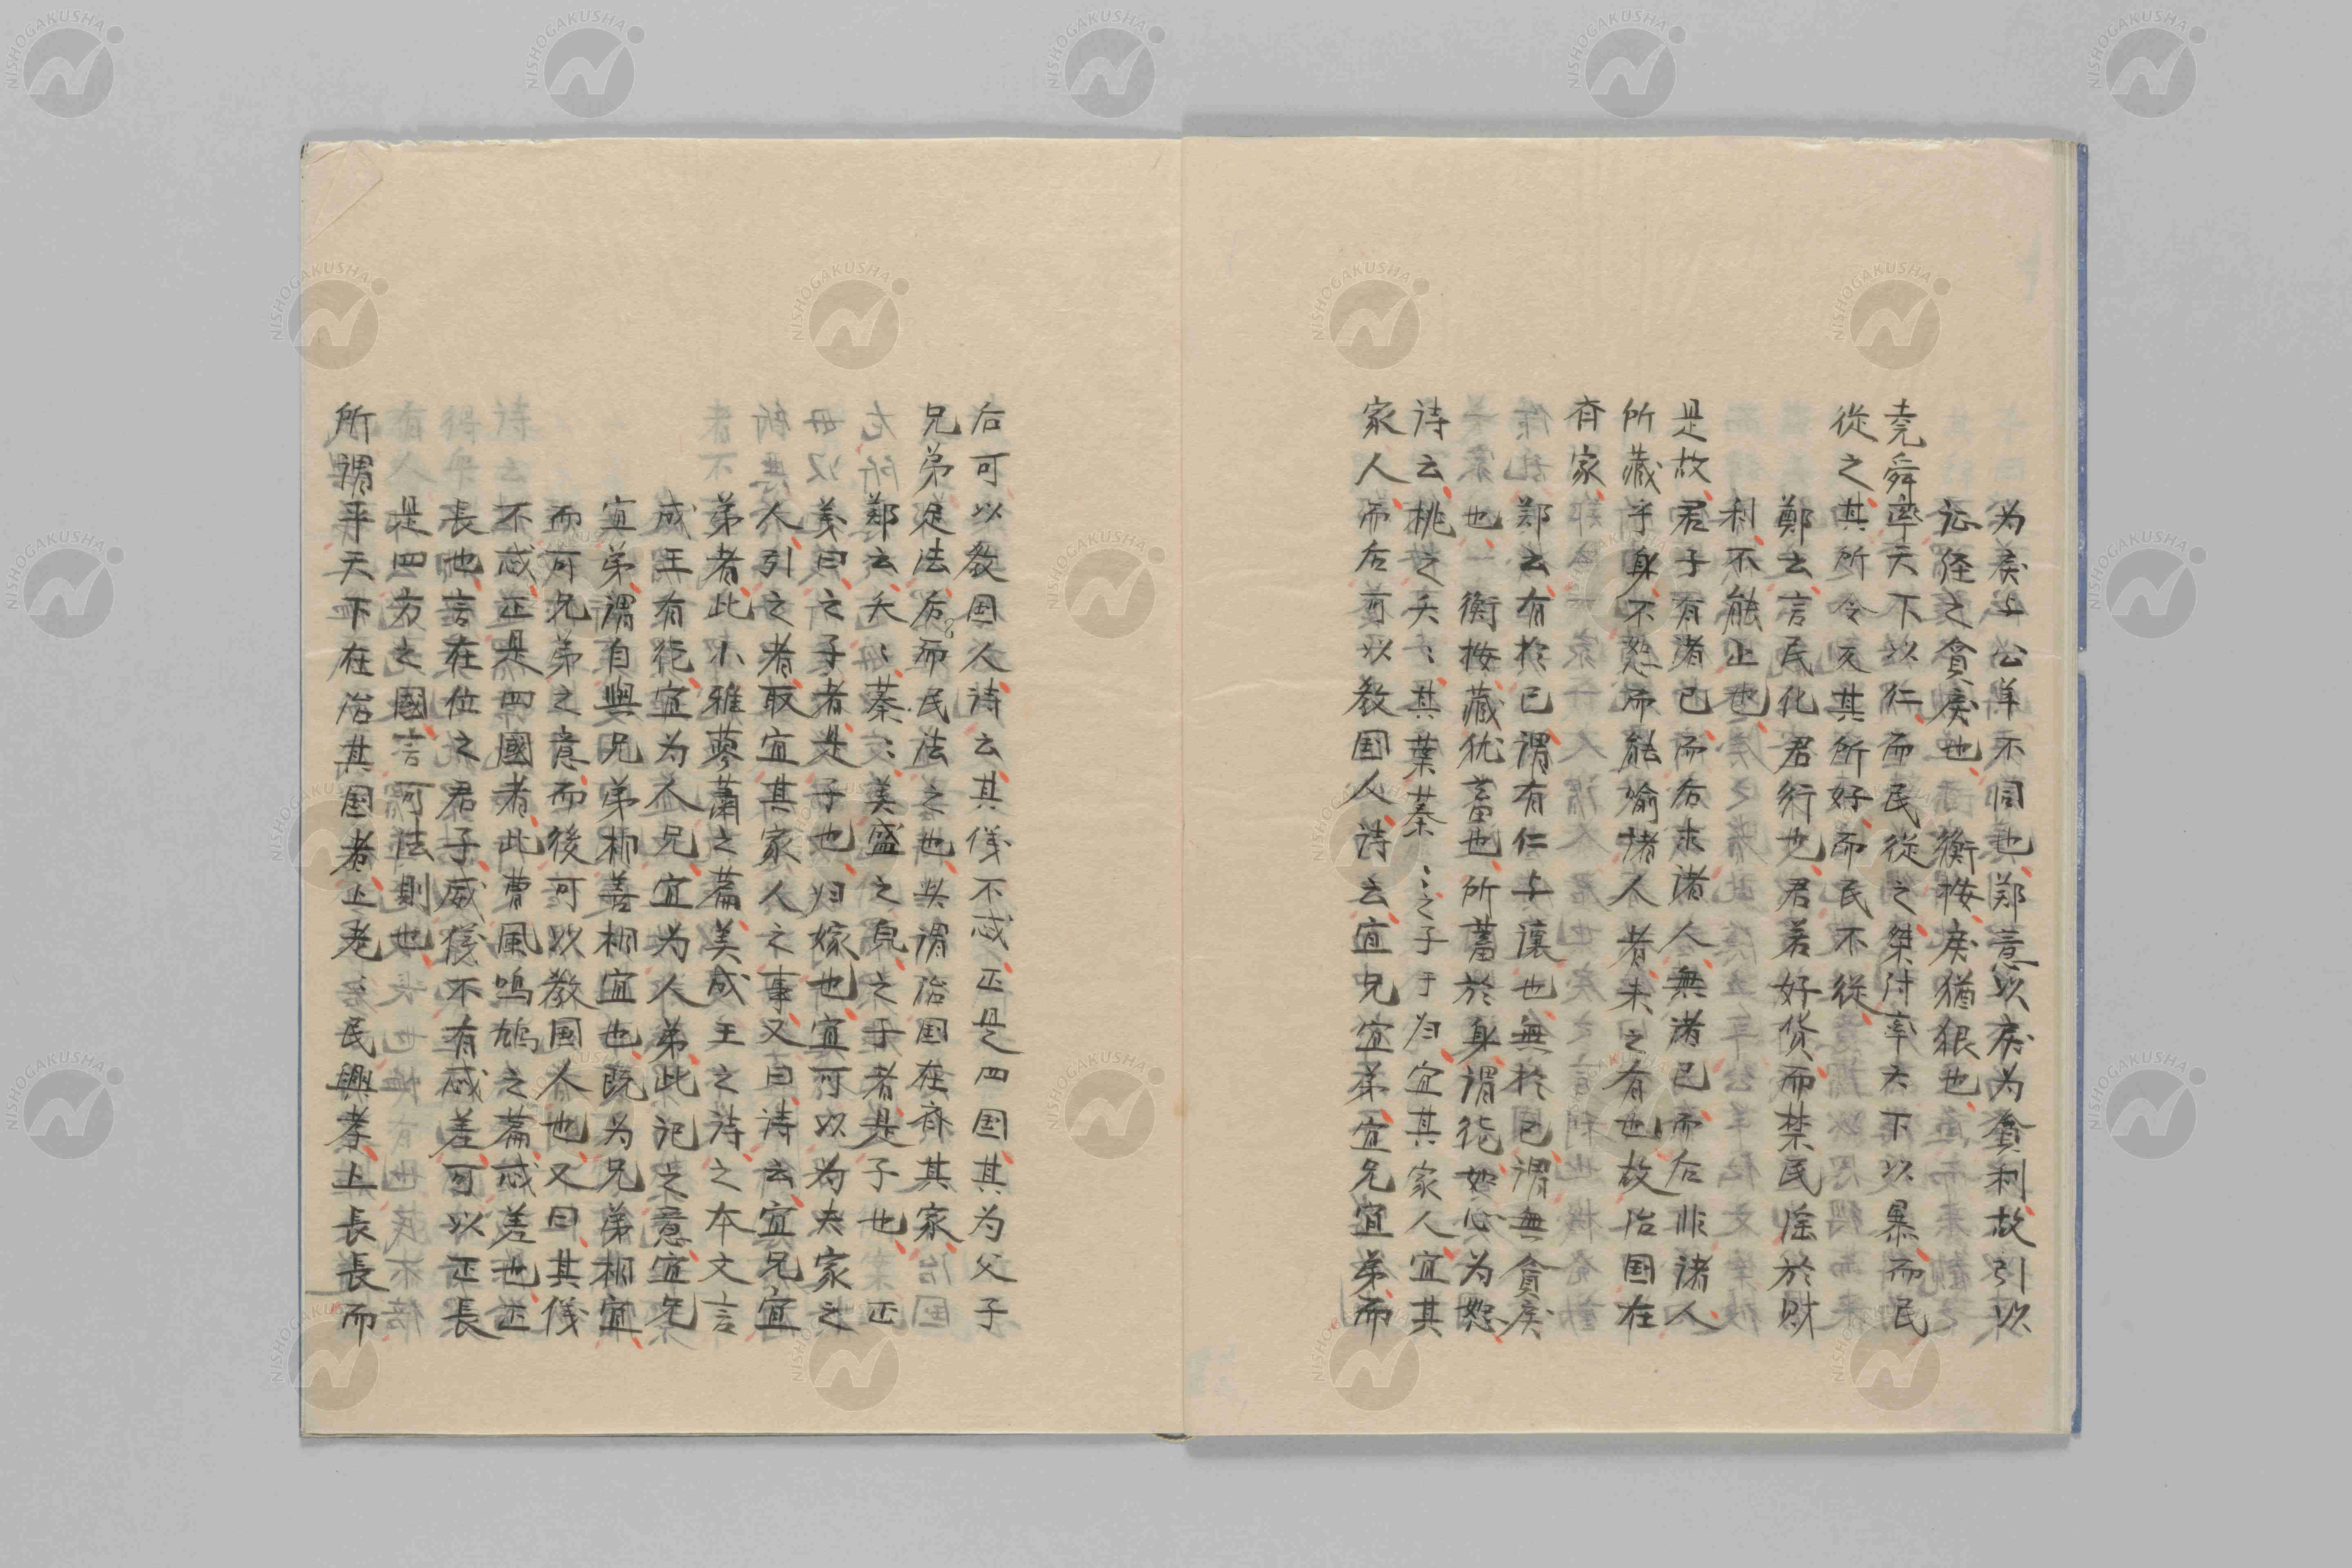 为戻与公羊不同也鄭意以戻为貪利故引以
证経之貪戻也衡按戻猶很也
尭舜率天下以仁而民從之桀紂率天下以暴而民
從之其所令反其所好而民不從
鄭云言民化君行也君若好貨而禁民淫於財
利不能止也
是故君子有诸己而后求诸人無诸己而后非诸人
所藏乎身不恕而能喻诸人者未之有也故治国在
斉家
鄭云有於己謂有仁与讓也無於己謂無貪戻
也一衡按藏犹蓄也所蓄於身謂従如心为恕
诗云桃之夭ミ其葉蓁ミ之子于归宜其家人宜其
家人而后可以教国人诗云宜兄宜弟宜兄宜弟而
后可以教国人诗云其儀不忒正是四国其为父子
兄弟足法而后民法之也此謂治国在斉其家
鄭云夭ミ蓁ミ美盛之皃之子者是子也正
義曰之子者是子也归嫁也宜可以为夫家之
人引之者取宜其家人之事又曰诗云宜兄宜
弟者此小雅蓼蕭之篇美成王之诗之本文言
成王有徳宜为人兄宜为人弟此記之意宜兄
宜弟謂自與兄弟相善相宜也既为兄弟相宜
而可兄弟之意而後可以教国人也又曰其儀
不忒正是四國者此曹風鳴鳩之篇忒差也正
長也言在位之君子威儀不有忒差可以正長
是四方之國言可法則也
所謂平天下在治其国者上老ミ民興孝上長長而
NISHOGAKUSHA